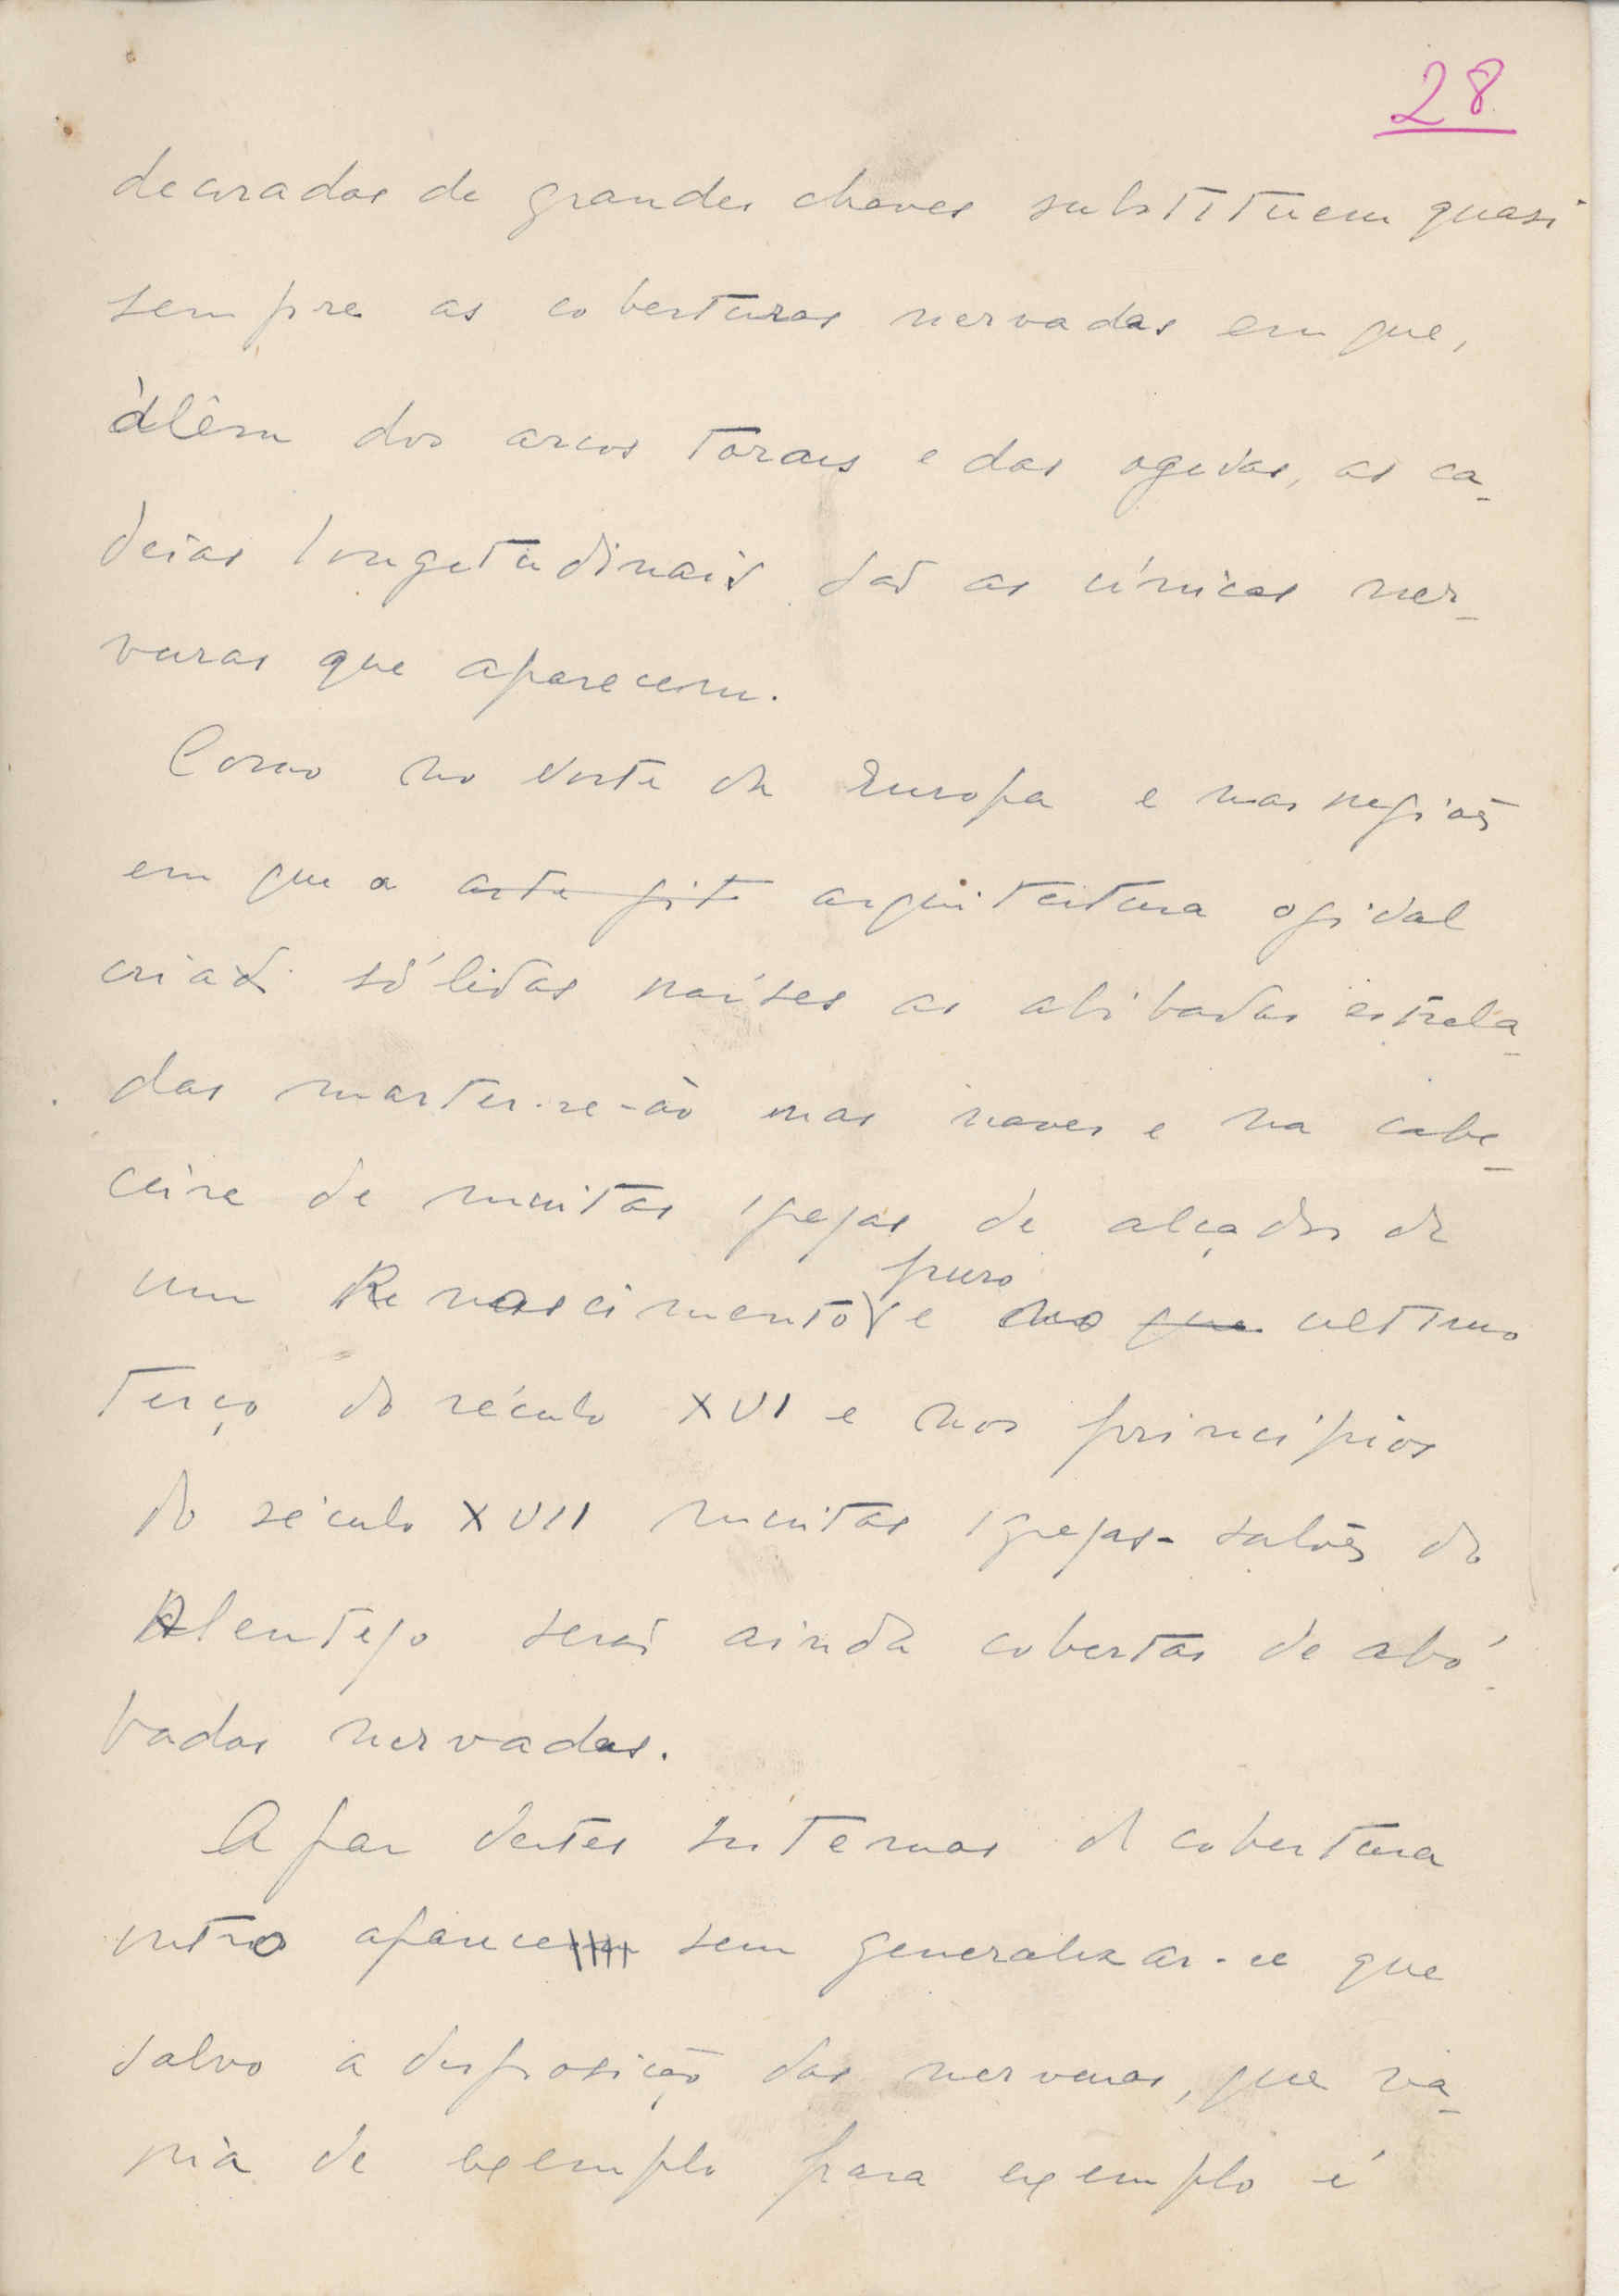 28
decorados de grandes chaves substituem quasi
sempre as coberturas nervadas em que,
àlêm dos arcos torais e das ogivas, as ca-
deias longitudinais são as únicas ner-
vuras que aparecem.
Como no norte da Europa e nas regiões
em que a arte gót arquitectura ogival
criou sólidas raíses as abóbadas estrela-
das manter-se-ão nas naves e na cabe-
ceira de muitas igrejas de alçados de
puro
um Renascimento e no que ultimo
terço do século XVI e nos princípios
do século XVII muitas igrejas-salões do
Alentejo serão ainda cobertas de abó-
badas nervadas.
A par destes sistemas de cobertura
outro aparece sem generalizar-se que
salvo a disposição das nervuras, que va-
ria de exemplo para exemplo é